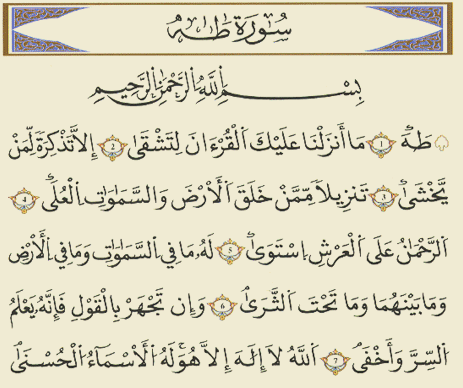 سُورَةُ طَهَ
بِسْمِ اِ۬للَّهِ اِ۬لرَّحْمَٰنِ اِ۬لرَّحِيمِ
طَهَۖ 1 مَا أَنزَلْنَا عَلَيْكَ اَ۬لْقُرْءَانَ لِتَشْقَىٰ 2 إِلَّا تَذْكِرَةً لِّمَنْ
يَّخْشَىٰۖ 3 تَنزِيلاً مِّمَّنْ خَلَقَ اَ۬لْأَرْضَ وَالسَّمَٰوَٰتِ اِ۬لْعُلَىۖ 4
اَ۬لرَّحْمَٰنُ عَلَى اَ۬لْعَرْشِ اِ۪سْتَوَىٰۖ 5 لَهُۥ مَا فِي اِ۬لسَّمَٰوَٰتِ وَمَا فِي اِ۬لْأَرْضِ
وَمَا بَيْنَهُمَا وَمَا تَحْتَ اَ۬لثَّرَىٰۖ 6 وَإِن تَجْهَرْ بِالْقَوْلِ فَإِنَّهُۥ يَعْلَمُ
اُ۬لسِّرَّ وَأَخْفَىۖ 7 اَ۬للَّهُ لَا إِلَٰهَ إِلَّا هُوَۖ لَهُ اُ۬لْأَسْمَآءُ اُ۬لْحُسْنَىٰۖ